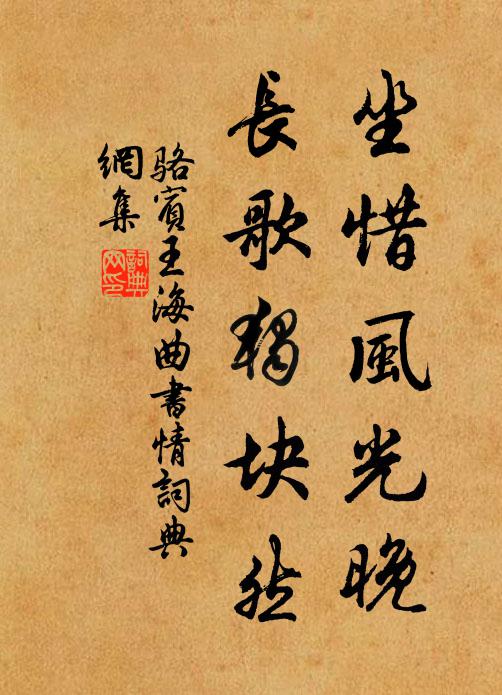 坐惜風光晚
長歌獨块然
駱賓王海曲書情詞典
網集
詞典
网印